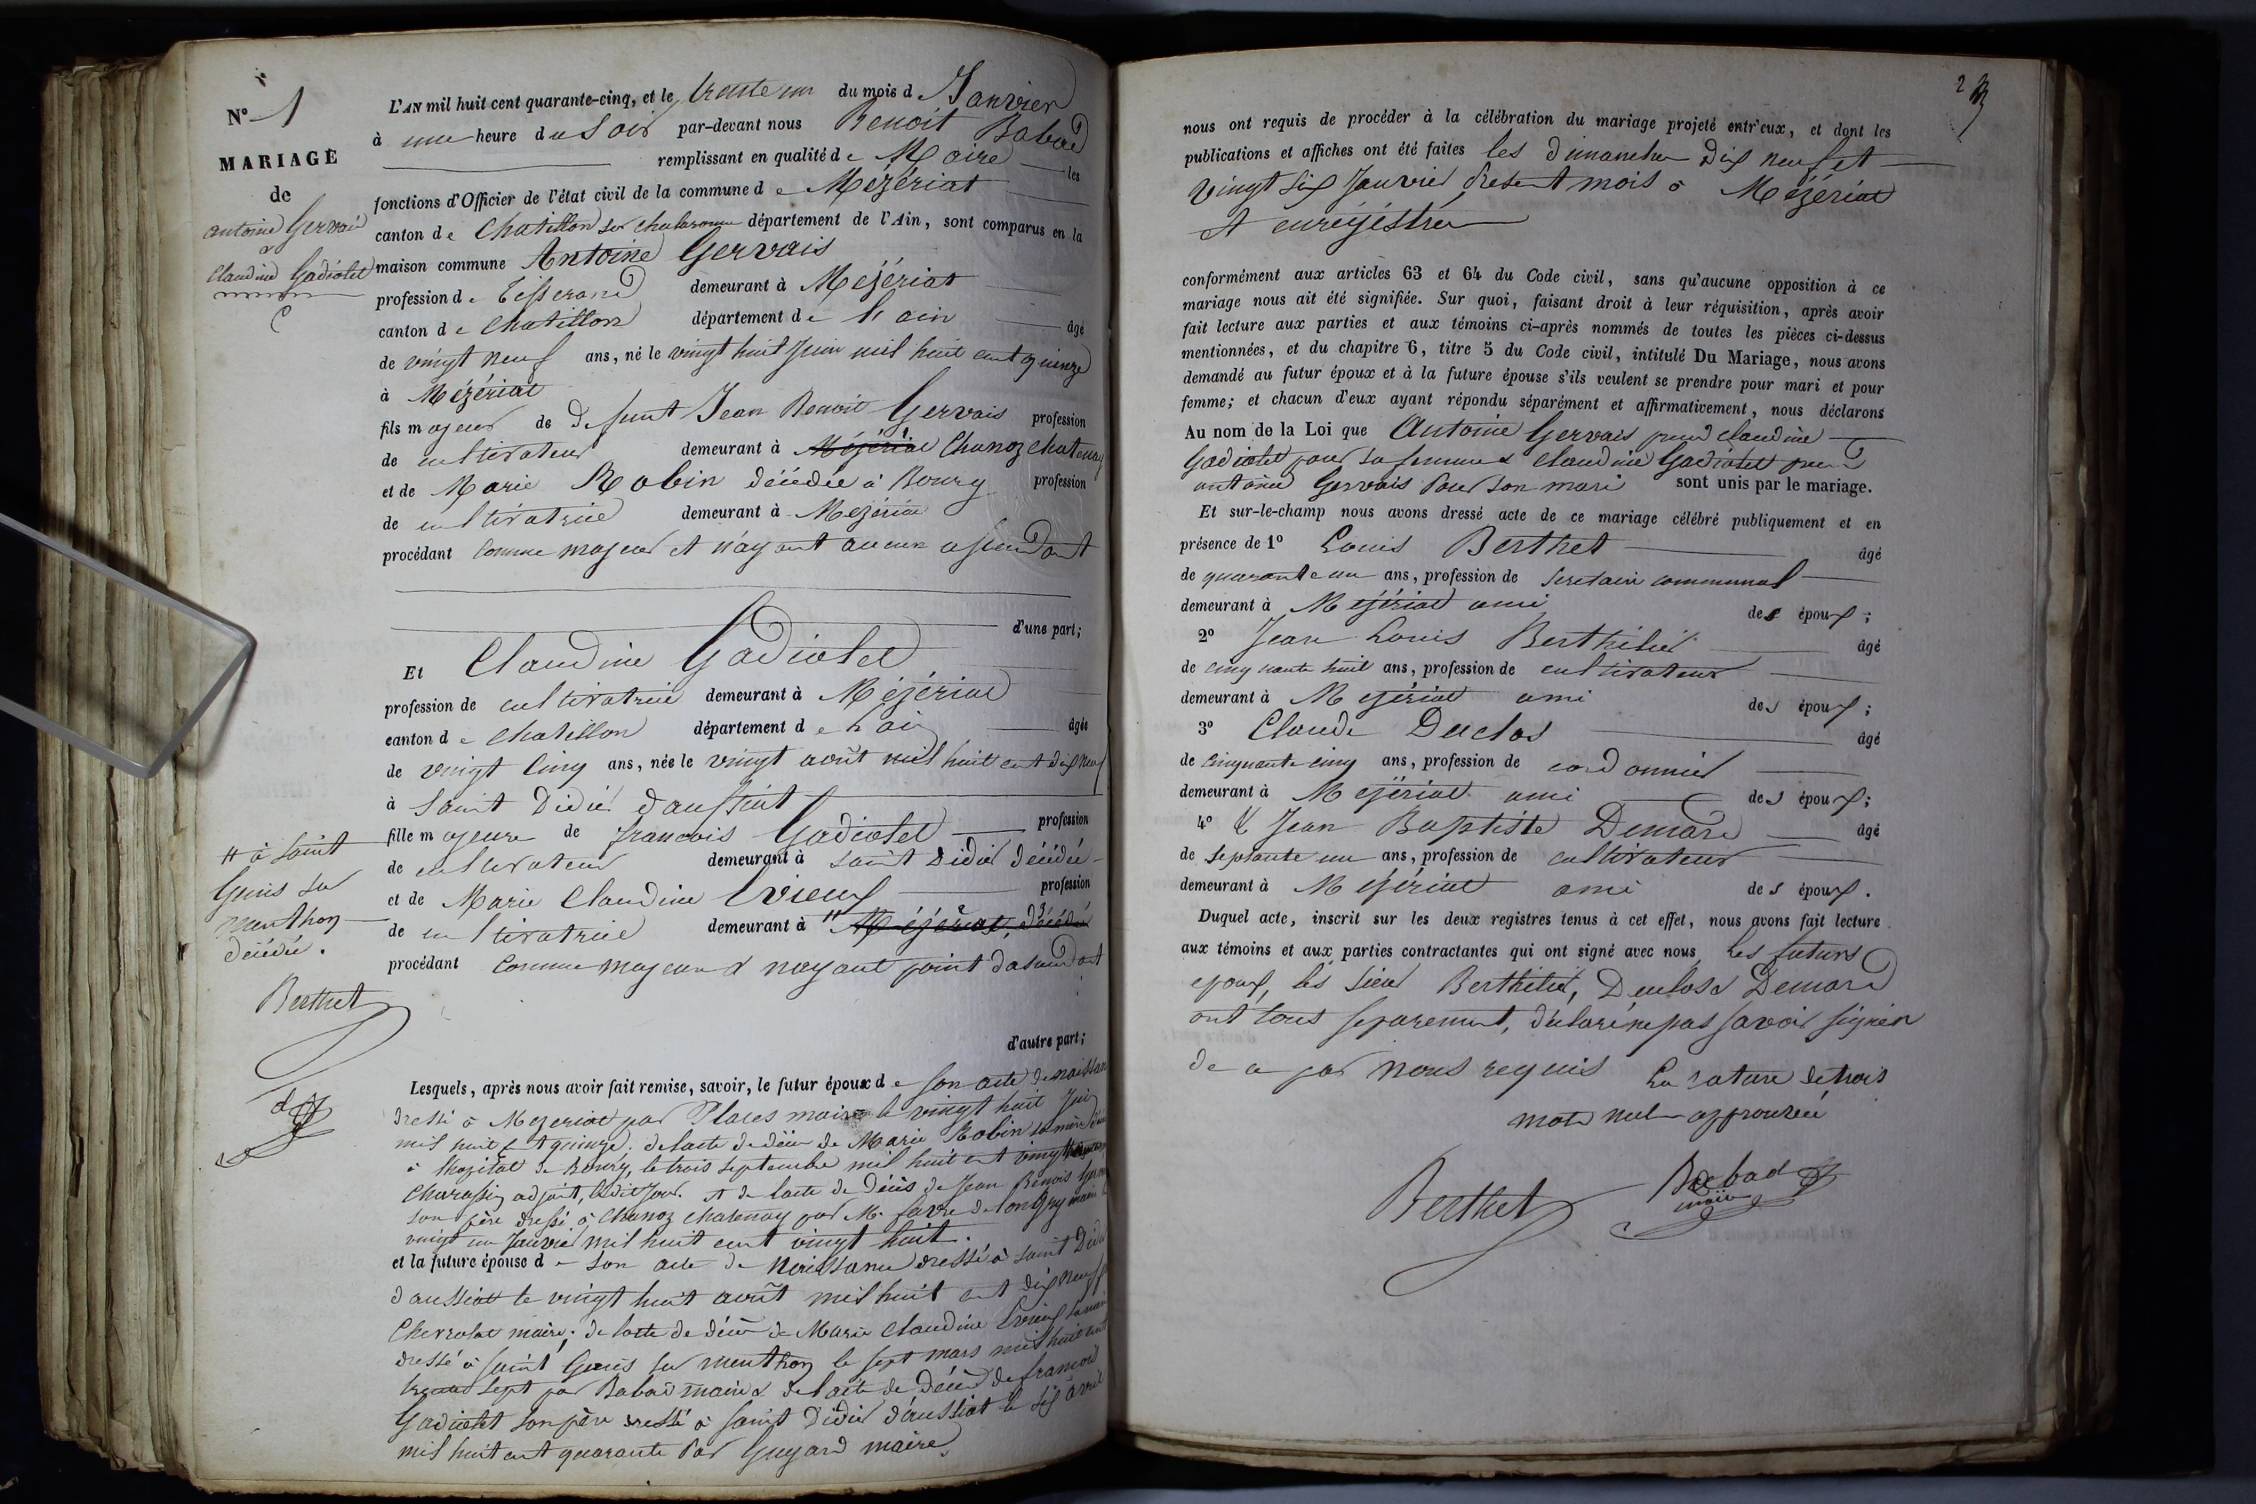 N° 1
MARIAGE
de
antoine Gervais
&
Claudine Gadiolet
L'AN mil huit cent quarante-cinq, et le trente un du mois de Janvier
à une heure du Soir par-devant nous Benoit Babad
remplissant en qualité de Maire les
fonctions d'Officier de l'état civil de la commune de Mézériat
canton de Chatillon sur Chalaronne département de l'Ain, sont comparus en la
maison commune Antoine Gervais
profession de Tisserand demeurant à Mézériat
canton de Chatillon département de l'ain âgé
de vingt neuf ans, né le vingt huit Juin mil huit cent quinze
à Mézériat
fils majeur de defunt Jean Benoit Gervais profession
de cultivateur demeurant à Mézériat Chanoz chatenay
et de Marie Robin décédée à Bourg profession
de cultivatrice demeurant à Mézériat
procédant comme majeur et n'ayant aucun ascendant
d'une part;
Et Claudine Gadiolet
profession de cultivatrice demeurant à Mézériat
canton de Chatillon département de l'ain âgée
de vingt cinq ans, née le vingt août mil huit cent dix neuf
à Saint Didier d'aussiat
fille majeure de françois Gadiolet profession
de cultivateur demeurant à saint Didier décédé
et de Marie Claudine Vieux profession
de cultivatrice demeurant à " Mézériat, décédée
procédant comme majeure & n'ayant point d'ascendant
d'autre part;
" à saint
Genis sur
menthon
décédée.
Berthet
Lesquels, après nous avoir fait remise, savoir, le futur époux de son acte de naissance
dressé à Mézériat par Places maire le vingt huit Juin
mil huit cent quinze. de l'acte de décès de Marie Robin sa mère
à l'hopital de Bourg, le trois septembre mil huit cent vingt
Charassin adjoint, ledit Jour. et de l'acte de décès de Jean Benoit Gervais
son père dressé à Chanoz Chatenay par Mr favre de Longry maire le
vingt un Janvier mil huit cent vingt huit.
et la future épouse de son acte de Naissance dressé à saint Didier
d'aussiat le vingt huit août mil huit cent dix neuf
maire; de l'acte de décès de Marie Claudine Vieux sa mère
dressé à saint Genis sur menthon le sept mars mil huit cent
trente sept par Babad maire & de l'acte de décès de françois
Gadiolet son père dressé à saint Didier d'aussiat le six avril
mil huit cent quarante Par Guyard maire.
2
nous ont requis de procéder à la célébration du mariage projeté entr'eux, et dont les
publications et affiches ont été faites les dimanches Dix neuf et
vingt six Janvier présent mois à Mézériat
et enrégistrés
conformément aux articles 63 et 64 du Code civil, sans qu'aucune opposition à ce
mariage nous ait été signifiée. Sur quoi, faisant droit à leur réquisition, après avoir
fait lecture aux parties et aux témoins ci-après nommés de toutes les pièces ci-dessus
mentionnées, et du chapitre 6, titre 5 du Code civil, intitulé Du Mariage, nous avons
demandé au futur époux et à la future épouse s'ils veulent se prendre pour mari et pour
femme; et chacun d'eux ayant répondu séparément et affirmativement, nous déclarons
Au nom de la Loi que Antoine Gervais prend claudine
Gadiolet pour sa femme & Claudine Gadiolet prend
antoine Gervais Pour son mari sont unis par le mariage.
Et sur-le-champ nous avons dressé acte de ce mariage célébré publiquement et en
présence de 1° Louis Berthet âgé
de quarante un ans, profession de secretaire communal
demeurant à Mézériat ami des époux;
2° Jean Louis Berthilier âgé
de cinquante huit ans, profession de cultivateur
demeurant à Mézériat ami des époux;
3° Claude Duclos âgé
de cinquante cinq ans, profession de cordonnier
demeurant à Mézériat ami des époux;
4° & Jean Baptiste Demard âgé
de septante un ans, profession de cultivateur
demeurant à Mézériat ami des époux.
Duquel acte, inscrit sur les deux registres tenus à cet effet, nous avons fait lecture
aux témoins et aux parties contractantes qui ont signé avec nous, Les futurs
epoux, les sieur Berthilier, Duclos & Demard
ont tous séparement, déclaré ne pas savoir signer
de ce par Nous requis La rature de trois
mots nuls approuvée
Berthet
Babad
maire